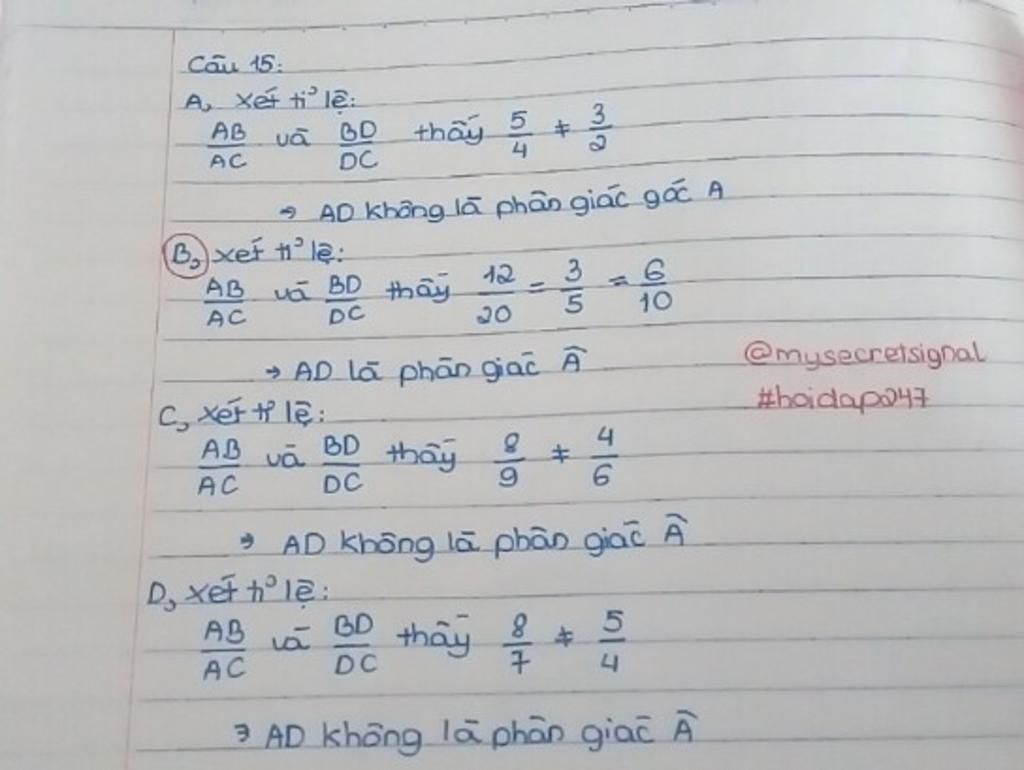 Câu 15:
A, xét tỉ lệ:
AB/AC và BD/DC thấy 5/4 ≠ 3/2
→ AD không là phân giác góc A
B, xét tỉ lệ:
AB/AC và BD/DC thấy 12/20 = 3/5 = 6/10
→ AD là phân giác Â
@mysecretsignal
#hoidap247
C, xét tỉ lệ:
AB/AC và BD/DC thấy 8/9 ≠ 4/6
→ AD không là phân giác Â
D, xét tỉ lệ:
AB/AC và BD/DC thấy 8/7 ≠ 5/4
→ AD không là phân giác Â